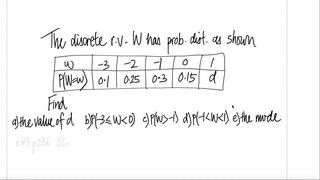 The discrete r.v. W has prob. dist. as shown
w -3 -2 -1 0 1
P(W=w) 0.1 0.25 0.3 0.15 d
Find
a) the value of d b) P(-3≤W<0) c) P(W>-1) d) P(-1<W<1) e) the mode